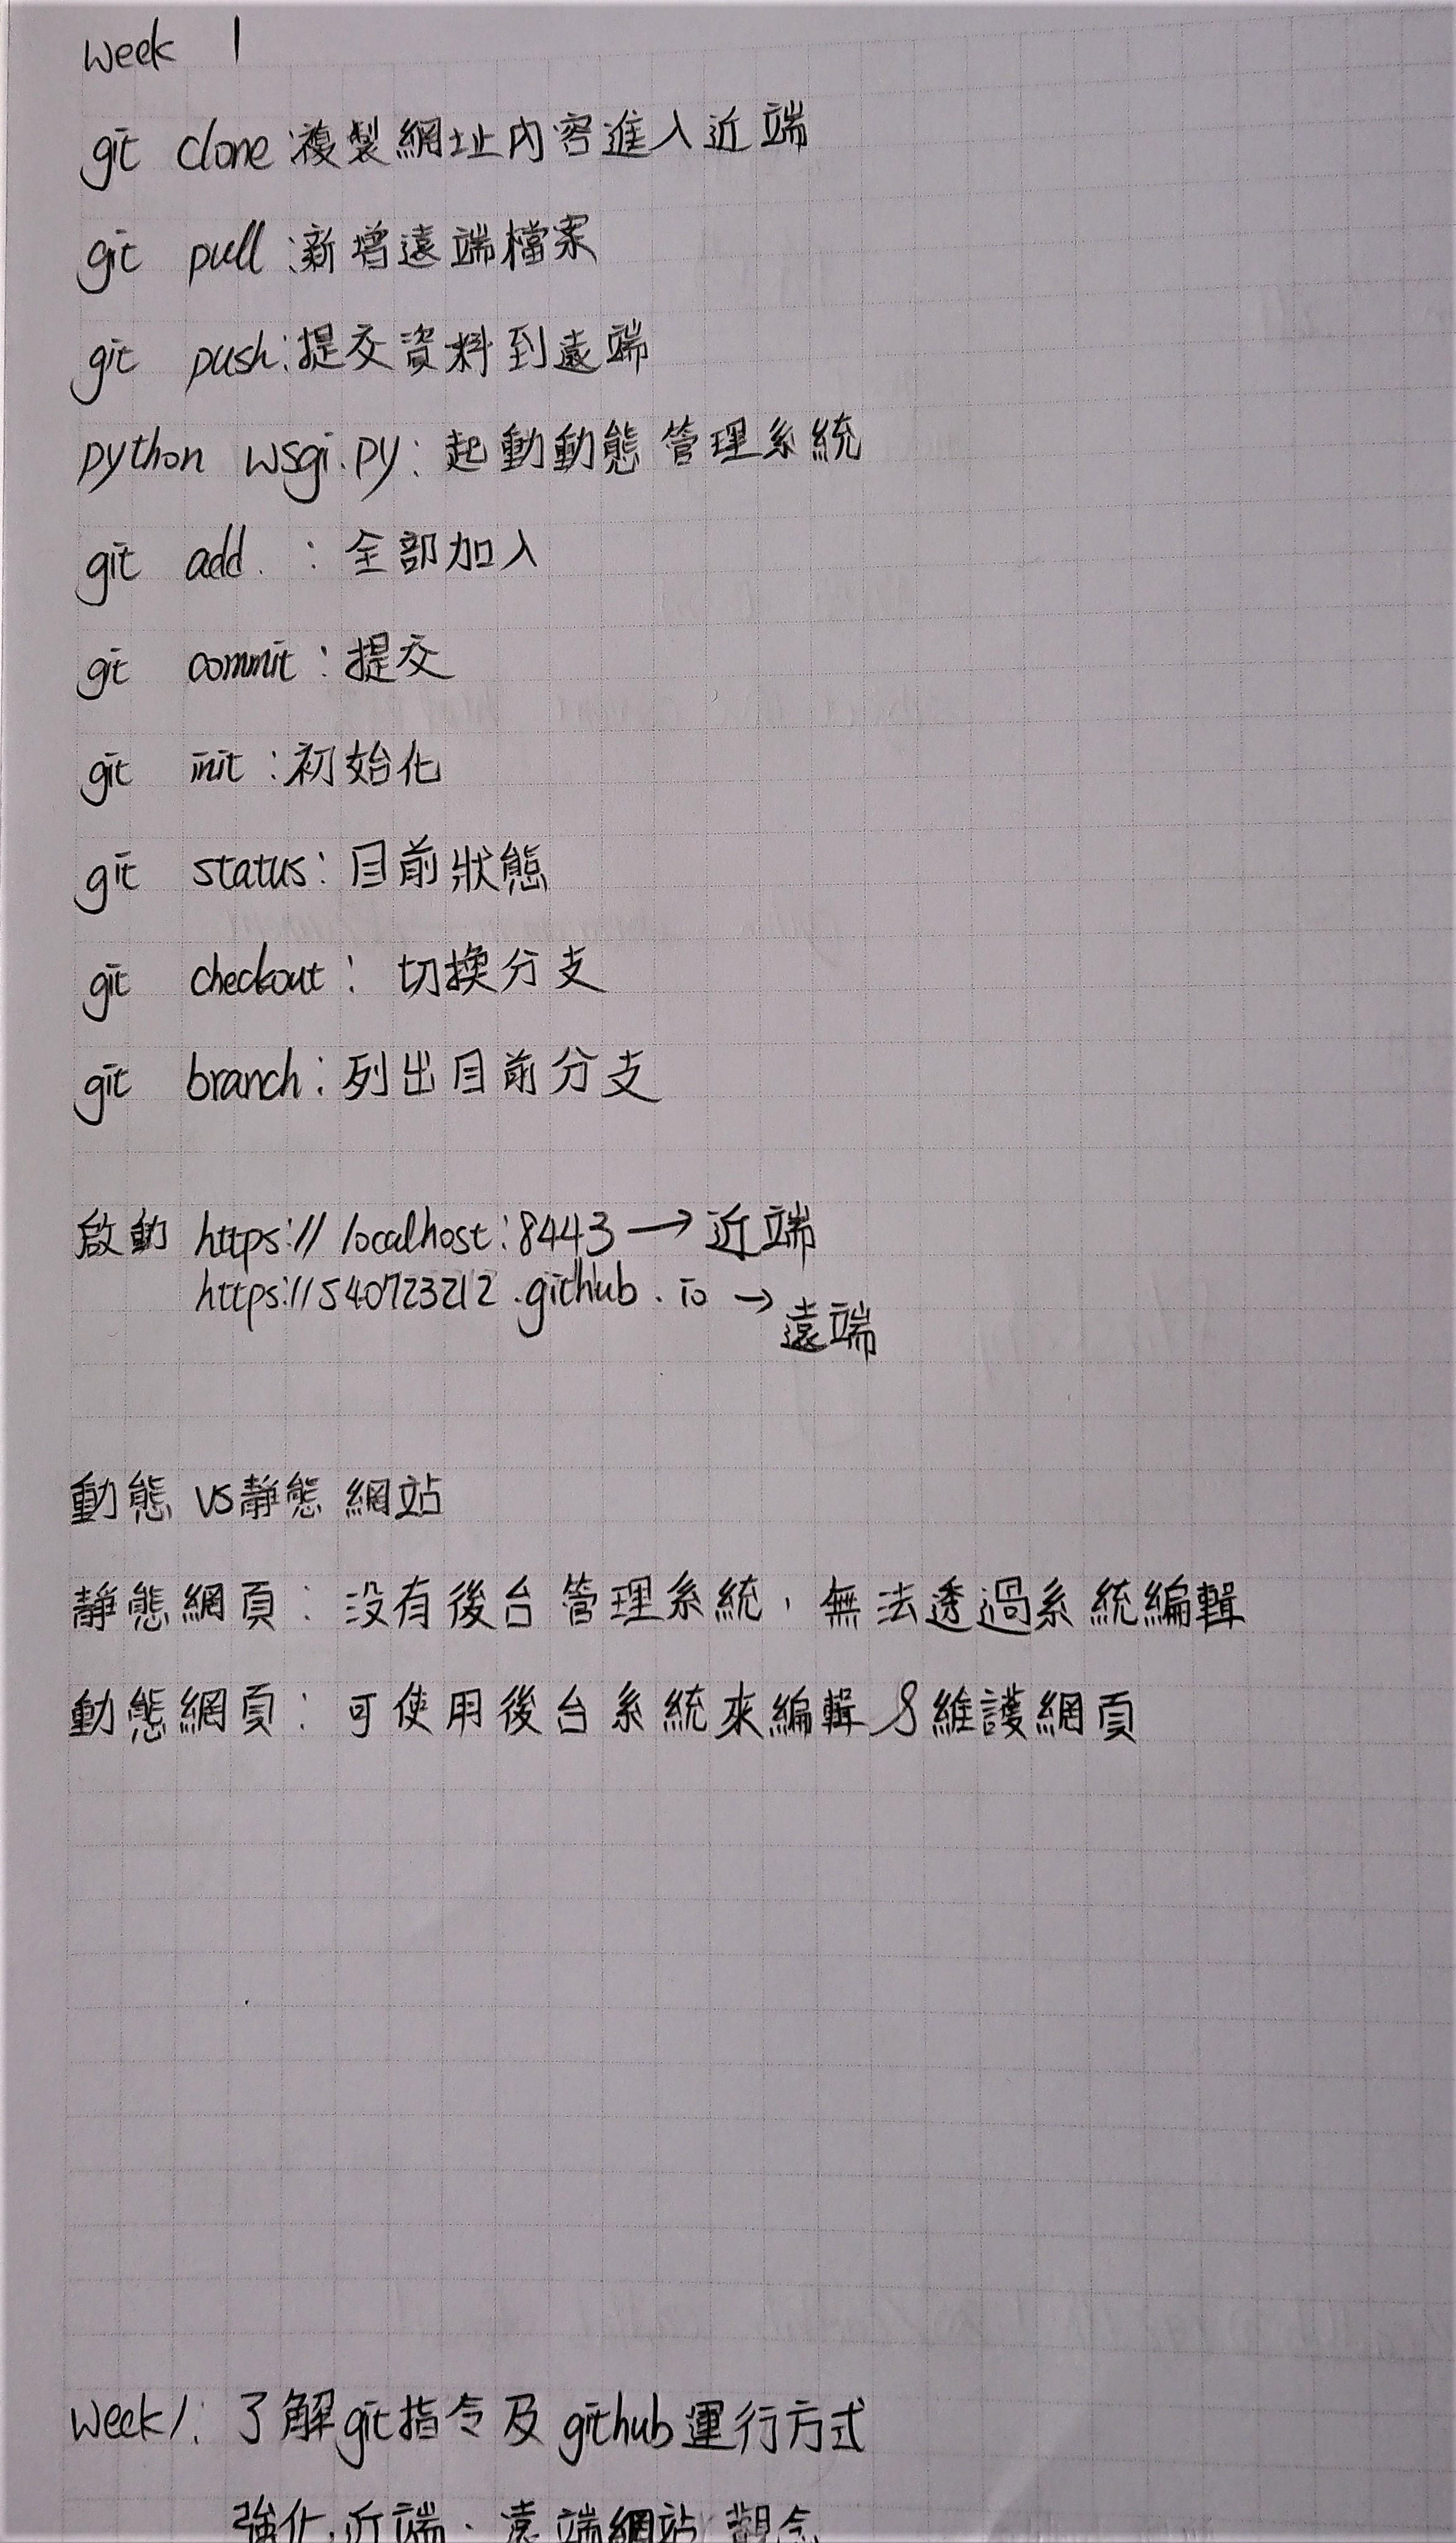 week 1
git clone:複製網址內容進入近端
git pull:新增遠端檔案
git push:提交資料到遠端
python wsgi.py: 起動動態管理系統
git add. : 全部加入
git commit : 提交
git init : 初始化
git status: 目前狀態
git checkout: 切換分支
git branch: 列出目前分支
啟動 https://localhost:8443 → 近端
https://540723212.github.io → 遠端
動態 vs靜態網站
靜態網頁: 沒有後台管理系統, 無法透過系統編輯
動態網頁: 可使用後台系統來編輯&維護網頁
week1: 了解git指令及github運行方式
強化近端、遠端網站觀念